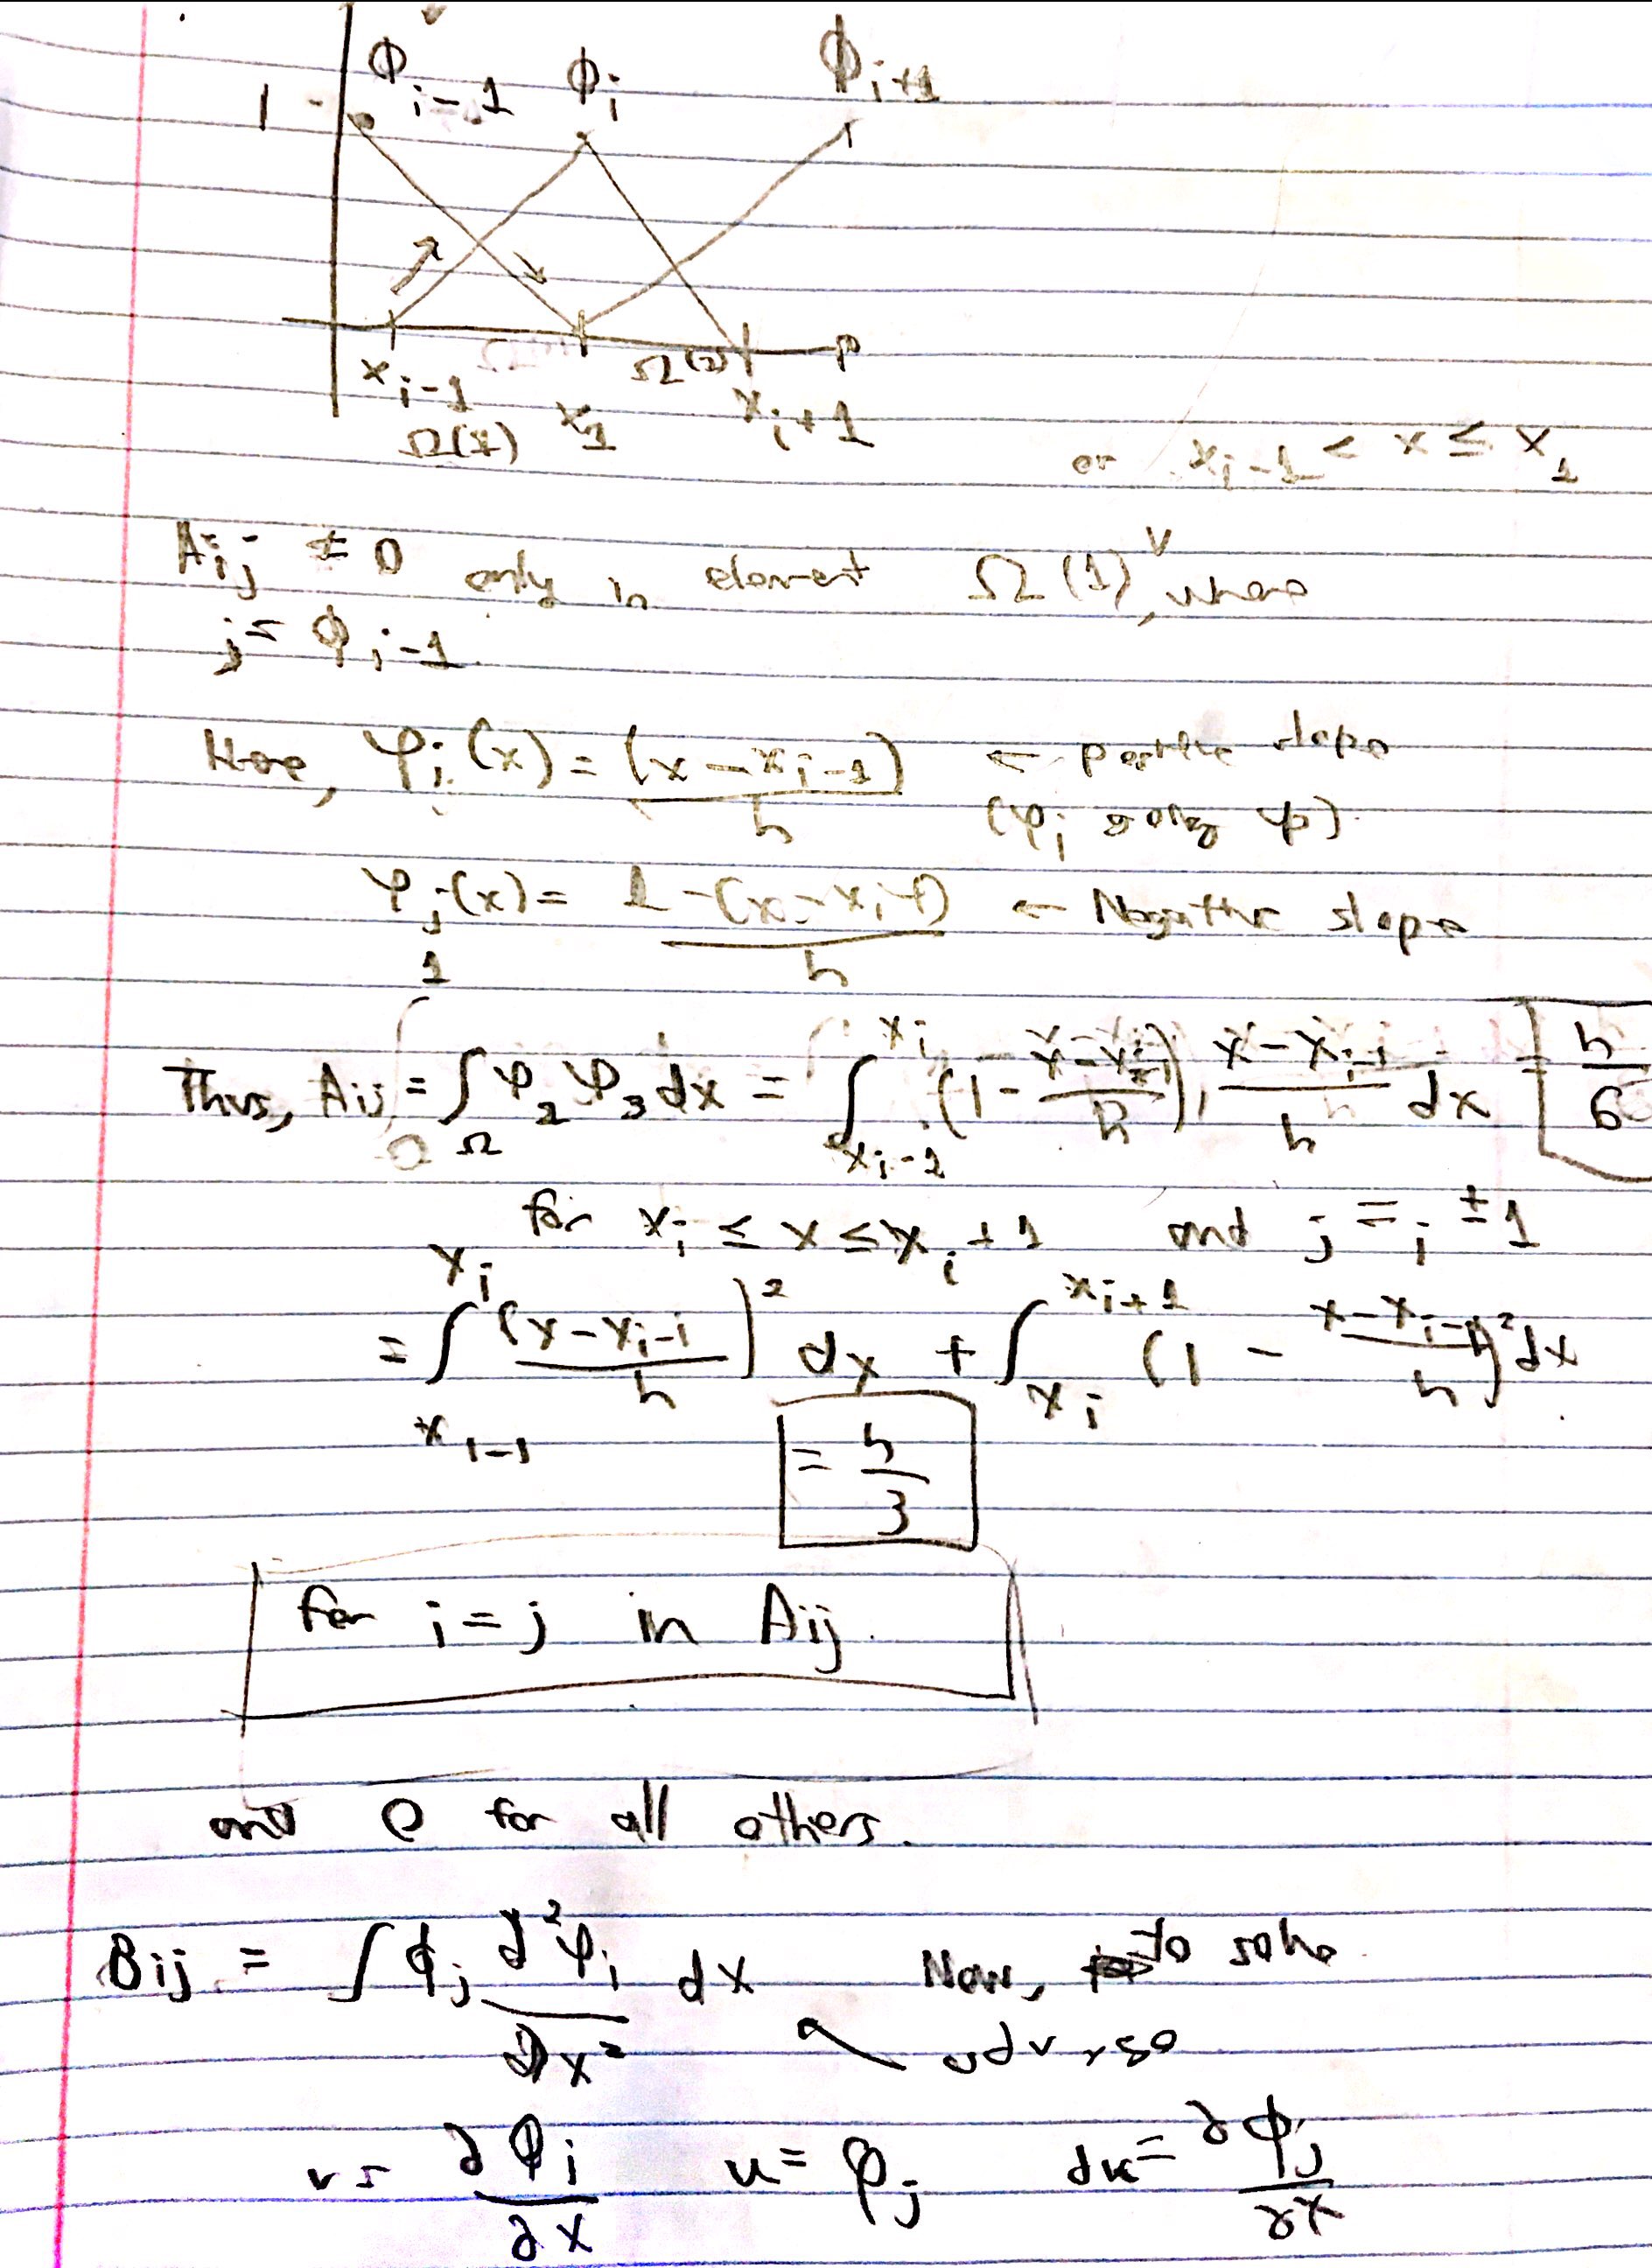 1 - Φ i-1 Φ i Φ i+1
x i-1 x 1 Ω(2) x i+1
Ω(1)
or x i-1 < x ≤ x 1
A ij ≠ 0 only in element Ω(1), where
j = Φ i-1
Here, φ i (x) = (x - x i-1) / h ← positive slope
(φ i going up)
φ j (x) = 1 - (x - x i-1) / h ← Negative slope
1
Thus, A ij = ∫ Ω φ 2 φ 3 dx = ∫ x i-1 x i (1 - (x - x i-1) / h) · (x - x i-1) / h dx = h / 6
0
for x i ≤ x ≤ x i + 1 and j = i ± 1
= ∫ x i-1 x i ((x - x i-i) / h)² dx + ∫ x i x i+1 (1 - (x - x i-1) / h)² dx
= h / 3
for i = j in A ij.
and 0 for all others.
B ij = ∫ ϕ j ∂²φ i / ∂x² dx Now, to solve
udv, so
v = ∂ϕ i / ∂x u = φ j du = ∂ϕ j / ∂x